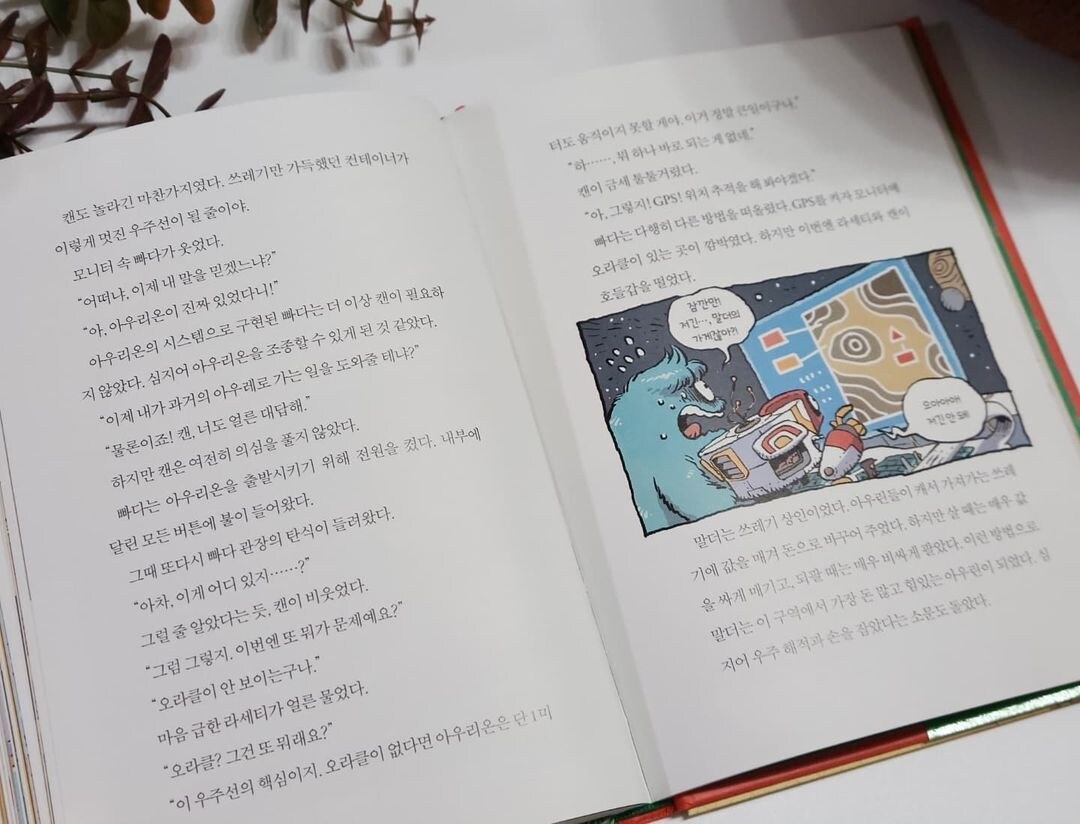 캔도 놀라긴 마찬가지였다. 쓰레기만 가득했던 컨테이너가
이렇게 멋진 우주선이 될 줄이야.
모니터 속 빠다가 웃었다.
“어떠냐, 이제 내 말을 믿겠느냐?”
“아, 아우리온이 진짜 있었다니!”
아우리온의 시스템으로 구현된 빠다는 더 이상 캔이 필요하
지 않았다. 심지어 아우리온을 조종할 수 있게 된 것 같았다.
“이제 내가 과거의 아우레로 가는 일을 도와줄 테냐?”
“물론이죠! 캔, 너도 얼른 대답해.”
하지만 캔은 여전히 의심을 풀지 않았다.
빠다는 아우리온을 출발시키기 위해 전원을 켰다. 내부에
달린 모든 버튼에 불이 들어왔다.
그때 또다시 빠다 관장의 탄식이 들려왔다.
“아차, 이게 어디 있지……?”
그럴 줄 알았다는 듯, 캔이 비웃었다.
“그럼 그렇지. 이번엔 또 뭐가 문제예요?”
“오라클이 안 보이는구나.”
마음 급한 라세티가 얼른 물었다.
“오라클? 그건 또 뭐래요?”
“이 우주선의 핵심이지. 오라클이 없다면 아우리온은 단 1미
터도 움직이지 못할 게야. 이거 정말 큰일이구나.”
“하……, 뭐 하나 바로 되는 게 없네.”
캔이 금세 툴툴거렸다.
“아, 그렇지! GPS! 위치 추적을 해 봐야겠다.”
빠다는 다행히 다른 방법을 떠올렸다. GPS를 켜자 모니터에
오라클이 있는 곳이 깜박였다. 하지만 이번엔 라세티와 캔이
호들갑을 떨었다.
잠깐만!
저긴…, 말더의
가게잖아?!
으아아애!
저긴 안 돼!
말더는 쓰레기 상인이었다. 아우린들이 캐서 가져가는 쓰레
기에 값을 매겨 돈으로 바꾸어 주었다. 하지만 살 때는 매우 값
을 싸게 매기고, 되팔 때는 매우 비싸게 팔았다. 이런 방법으로
말더는 이 구역에서 가장 돈 많고 힘있는 아우린이 되었다. 심
지어 우주 해적과 손을 잡았다는 소문도 돌았다.